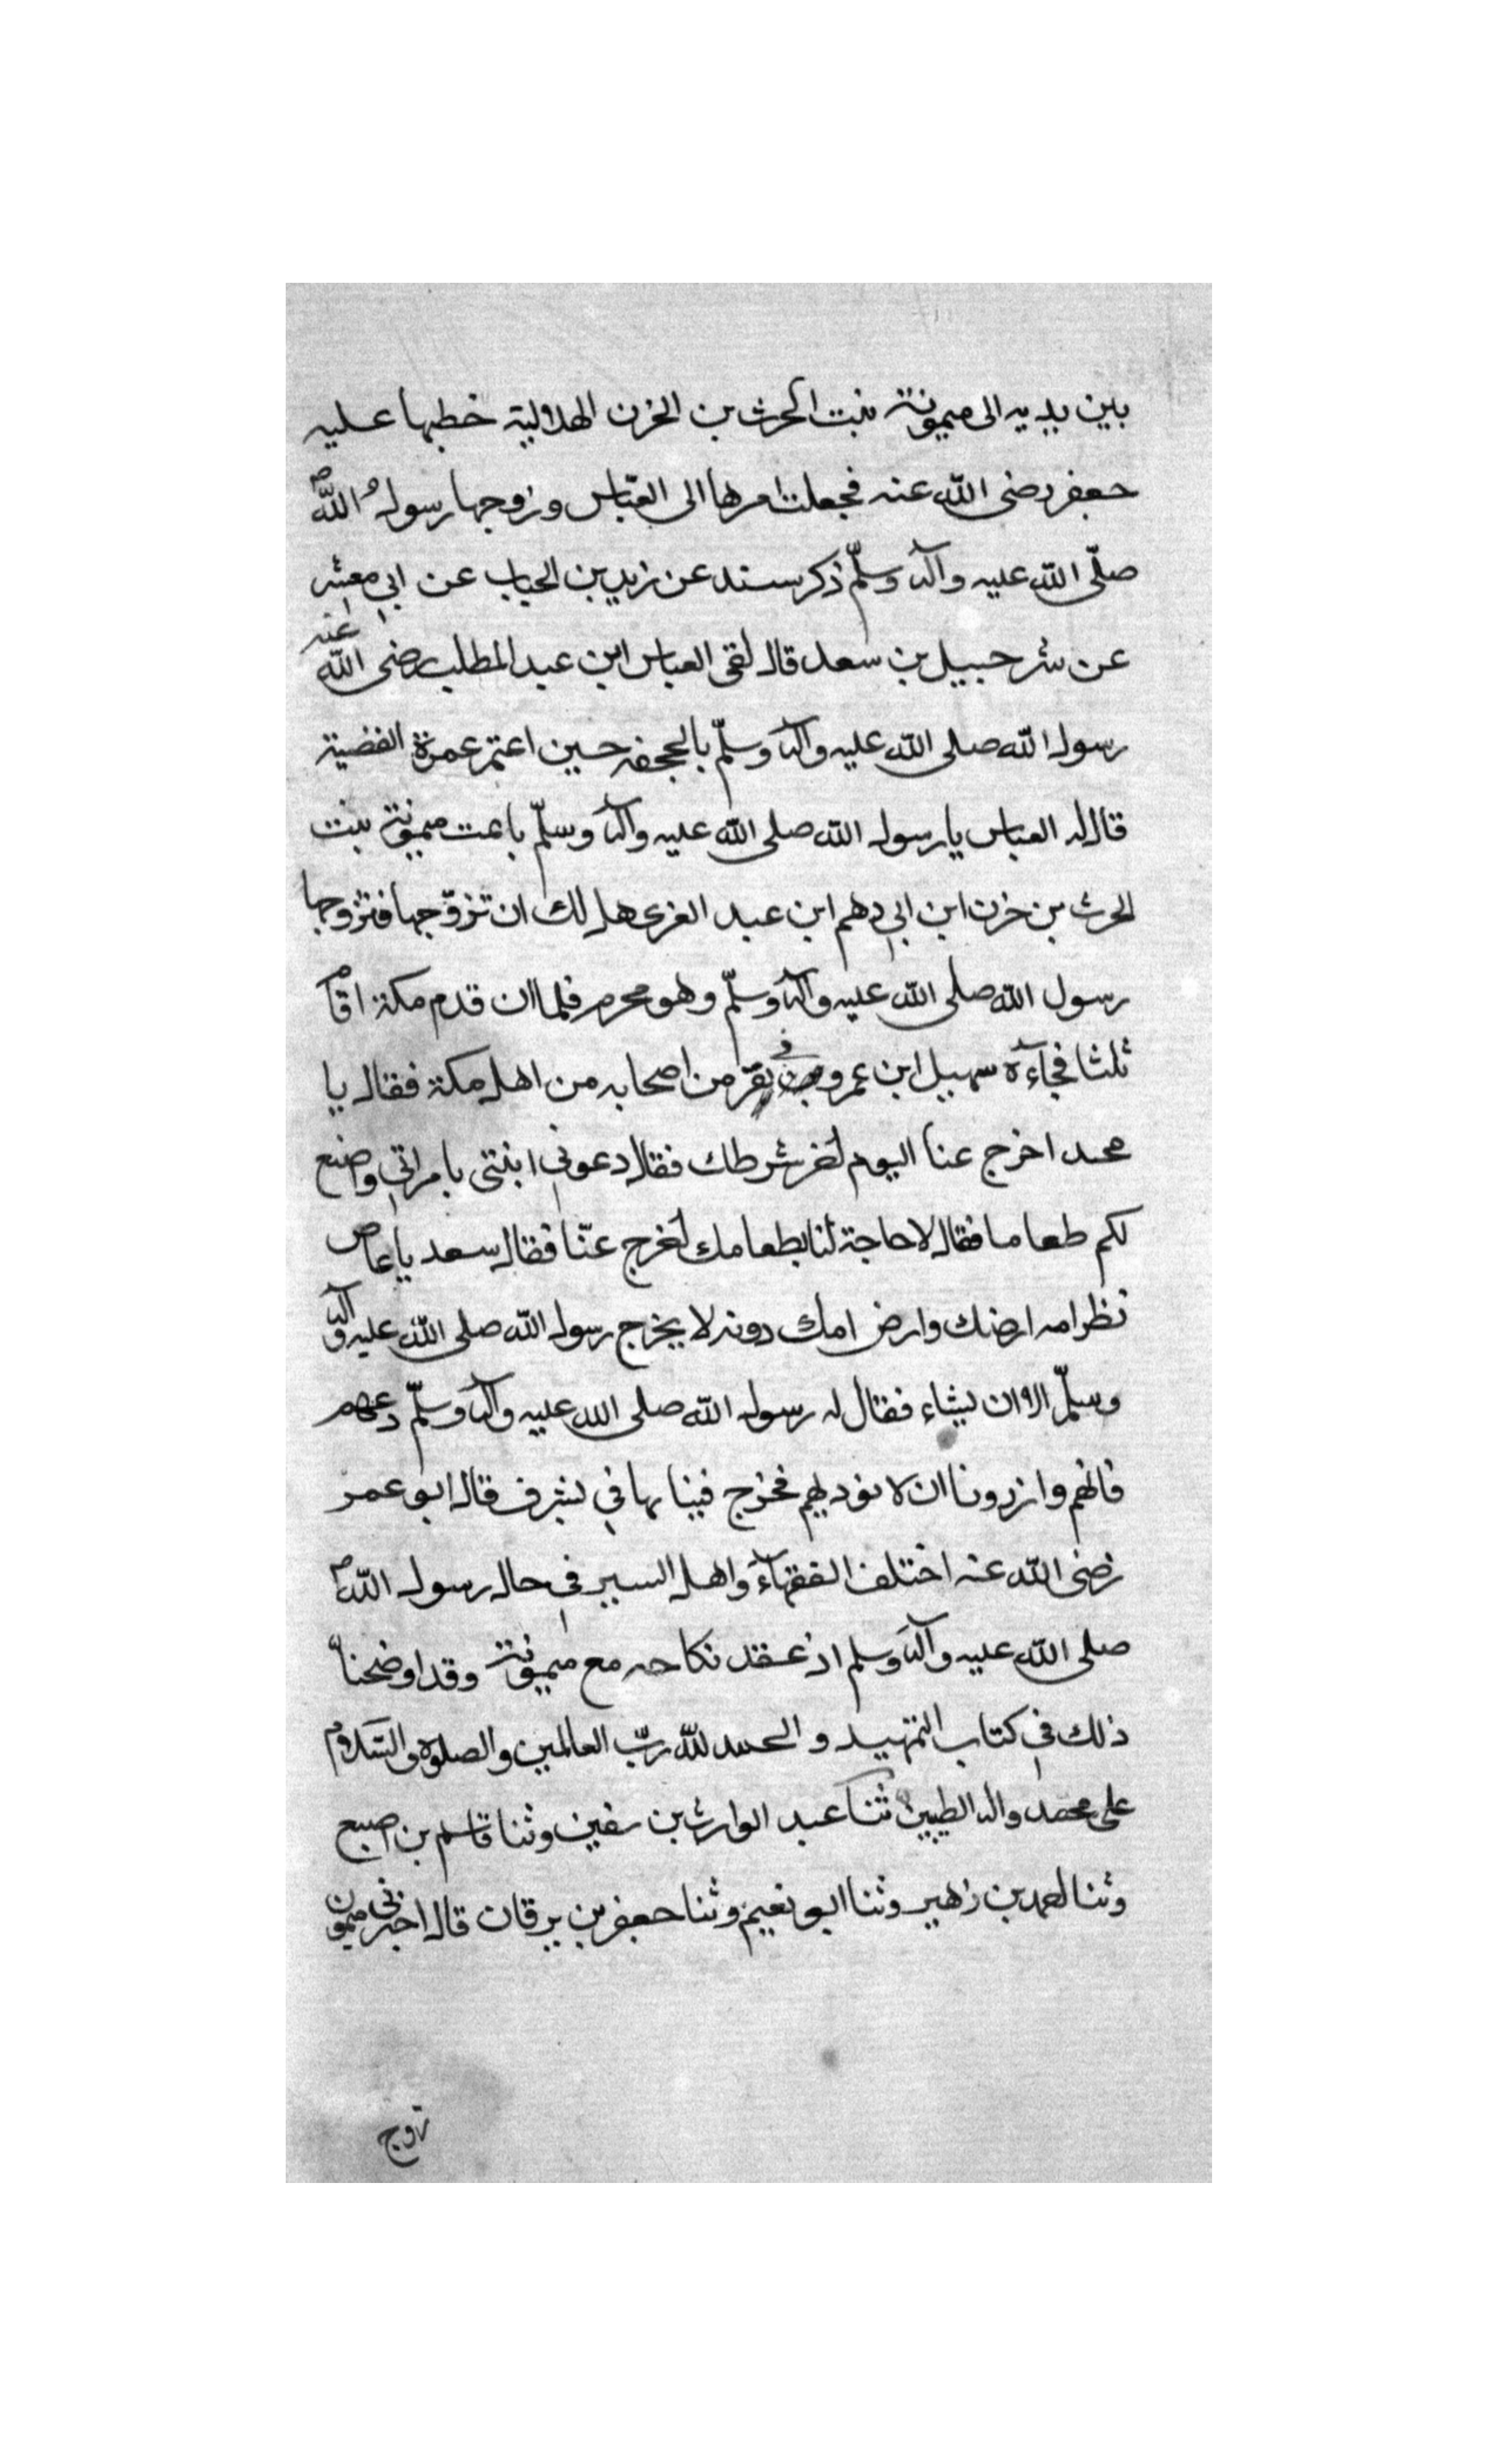 بين يديه الى ميمونة بنت الحرث بن الخزن الهلالية خطبها عليه
جعفر رضى الله عنه فجعلت امرها الى العبّاس وزوجها رسول الله
صلّى الله عليه وآله وسلّم ذكر سند عن زيد بن الحباب عن ابي معشر
عن شرحبيل بن سعد قال لقى العباس ابن عبد المطلب رضى الله عنه
رسول الله صلى الله عليه وآله وسلّم بالجحفه حين اعتمر عمرة القضية
قال له العباس يا رسول الله صلى الله عليه وآله وسلّم باعت ميمونة بنت
الحرث بن خزن ابن ابي دهم ابن عبد العزى هل لك ان تزوّجها فتزوجها
رسول الله صلى الله عليه وآله وسلّم وهو محرم فلما ان قدم مكة اقام
ثلثا فجآءه سهيل ابن عمرو في نفر من اصحابه من اهل مكة فقال يا
محمد اخرج عنا اليوم اخر شرطك فقال دعوني ابنتى بامراتي واضع
لكم طعاما فقال لا حاجة لنا بطعامك اخرج عنّا فقال سعد يا عاص
نظر امه ارضك وارض امك دونه لا يخرج رسول الله صلى الله عليه وآله
وسلّم الا ان يشاء فقال له رسول الله صلى الله عليه وآله وسلّم دعهم
فانهم وازرونا ان لا نوديهم فخرج فبينا بها في بشرف قال ابو عمر
رضى الله عنه اختلف الفقهآء واهل السير في حال رسول الله
صلى الله عليه وآله وسلم اذ عقد نكاحه مع ميمونة وقد اوضحنا
ذلك في كتاب التمهيد والحمد لله ربّ العالمين والصلوة والسلام
على محمد واله الطيبين ثنا عبد الوارث بن سفين وثنا قاسم بن اصبع
وثنا احمد بن زهير وثنا ابو نعيم وثنا جعفر بن برقان قال اخبرني ميمون
زوج